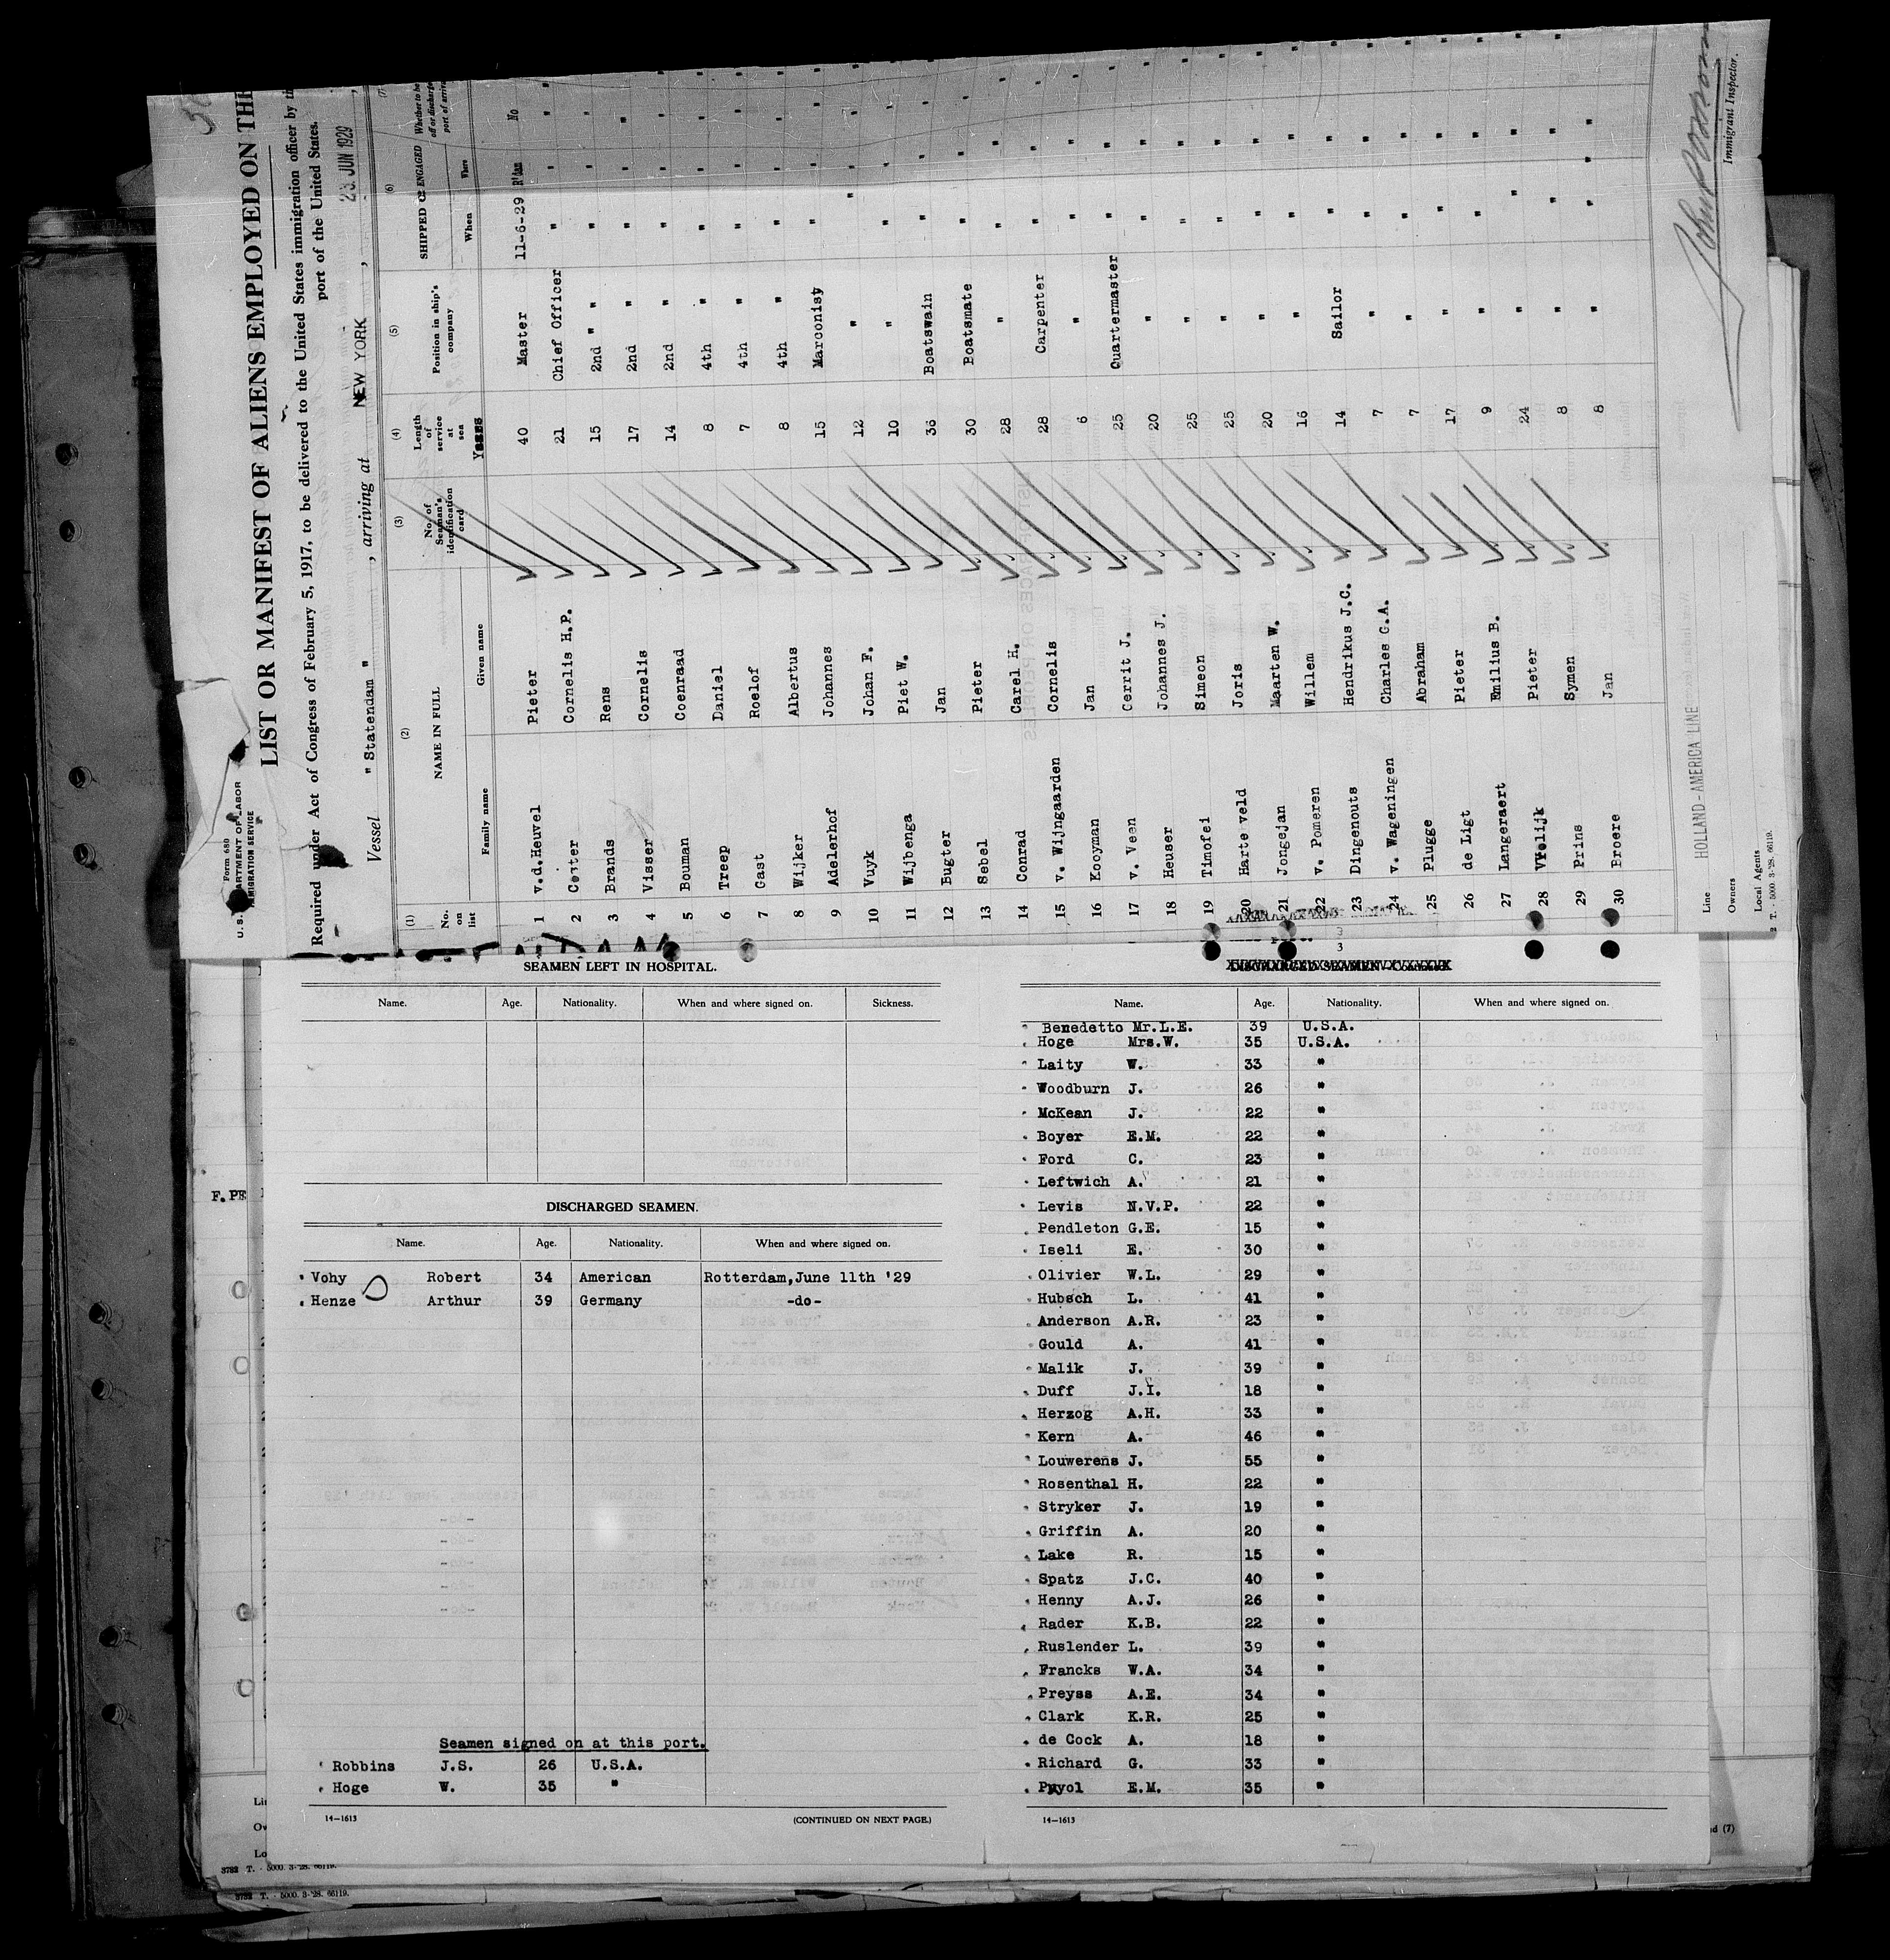 Form 680
U. S. DEPARTMENT OF LABOR
IMMIGRATION SERVICE
LIST OR MANIFEST OF ALIENS EMPLOYED ON THE
Required under Act of Congress of February 5, 1917, to be delivered to the United States immigration officer by the
port of the United States.
Vessel " Statendam " , arriving at NEW YORK , 23 JUN 1929 ,
(1) (2) (3) (4) (5) (6) (7)
No. on list
NAME IN FULL
Family name Given name
No. of Seaman's identification card
Length of service at sea
Years
Position in ship's company
SHIPPED OR ENGAGED
When Where
Whether to be
off or discharge
port of arriv
1 v.d.Heuvel Pieter 40 Master 11-6-29 R'dam No
2 Coster Cornelis H.P. 21 Chief Officer " " "
3 Brands Rens 15 2nd " " " " "
4 Visser Cornelis 17 2nd " " " "
5 Bouman Coenraad 14 2nd " " " "
6 Treep Daniel 8 4th " " " "
7 Gast Roelof 7 4th " " " "
8 Wijker Albertus 8 4th " " " "
9 Adelerhof Johannes 15 Marconist " " "
10 Vuyk Johan F. 12 " " " "
11 Wijbenga Piet W. 10 " " " "
12 Bugter Jan 36 Boatswain " " "
13 Sebel Pieter 30 Boatsmate " " "
14 Conrad Carel H. 28 " " " "
15 v. Wijngaarden Cornelis 28 Carpenter " " "
16 Kooyman Jan 6 " " " "
17 v. Veen Gerrit J. 25 Quartermaster " " "
18 Heuser Johannes J. 20 " " " "
19 Timofei Simeon 25 " " " "
20 Harteveld Joris 25 " " " "
21 Jongejan Maarten W. 20 " " " "
22 v. Pomeren Willem 16 " " " "
23 Dingenouts Hendrikus J.C. 14 Sailor " " "
24 v. Wageningen Charles G.A. 7 " " " "
25 Plugge Abraham 7 " " " "
26 de Ligt Pieter 17 " " " "
27 Langeraert Emilius B. 9 " " " "
28 Vrolijk Pieter 24 " " " "
29 Prins Symen 8 " " " "
30 Broere Jan 8 " " " "
Line HOLLAND-AMERICA LINE
Owners
Local Agents
2 T. - 5000. 3-'28. 66119.
Immigrant Inspector.
3
3
SEAMEN LEFT IN HOSPITAL.
Name. Age. Nationality. When and where signed on. Sickness.
DISCHARGED SEAMEN.
Name. Age. Nationality. When and where signed on.
Vohy Robert 34 American Rotterdam,June 11th '29
Henze Arthur 39 Germany -do-
Seamen signed on at this port.
Robbins J.S. 26 U.S.A.
Hoge W. 35 "
14—1613 (CONTINUED ON NEXT PAGE.)
DISCHARGED SEAMEN—Continued
Name. Age. Nationality. When and where signed on.
Benedetto Mr.L.E. 39 U.S.A.
Hoge Mrs.W. 35 U.S.A.
Laity W. 33 "
Woodburn J. 26 "
McKean J. 22 "
Boyer E.M. 22 "
Ford C. 23 "
Leftwich A. 21 "
Levis N.V.P. 22 "
Pendleton G.E. 15 "
Iseli E. 30 "
Olivier W.L. 29 "
Hubsch L. 41 "
Anderson A.R. 23 "
Gould A. 41 "
Malik J. 39 "
Duff J.I. 18 "
Herzog A.H. 33 "
Kern A. 46 "
Louwerens J. 55 "
Rosenthal H. 22 "
Stryker J. 19 "
Griffin A. 20 "
Lake R. 15 "
Spatz J.C. 40 "
Henny A.J. 26 "
Rader K.B. 22 "
Ruslender L. 39 "
Francks W.A. 34 "
Preyss A.E. 34 "
Clark K.R. 25 "
de Cock A. 18 "
Richard G. 33 "
Puyol E.M. 35 "
14—1613
F. PE
Lin
Ow
Lo
3782 T. - 5000. 3-'28. 66119.
3732 T. - 5000. 3-'28. 66119.
nd (7)